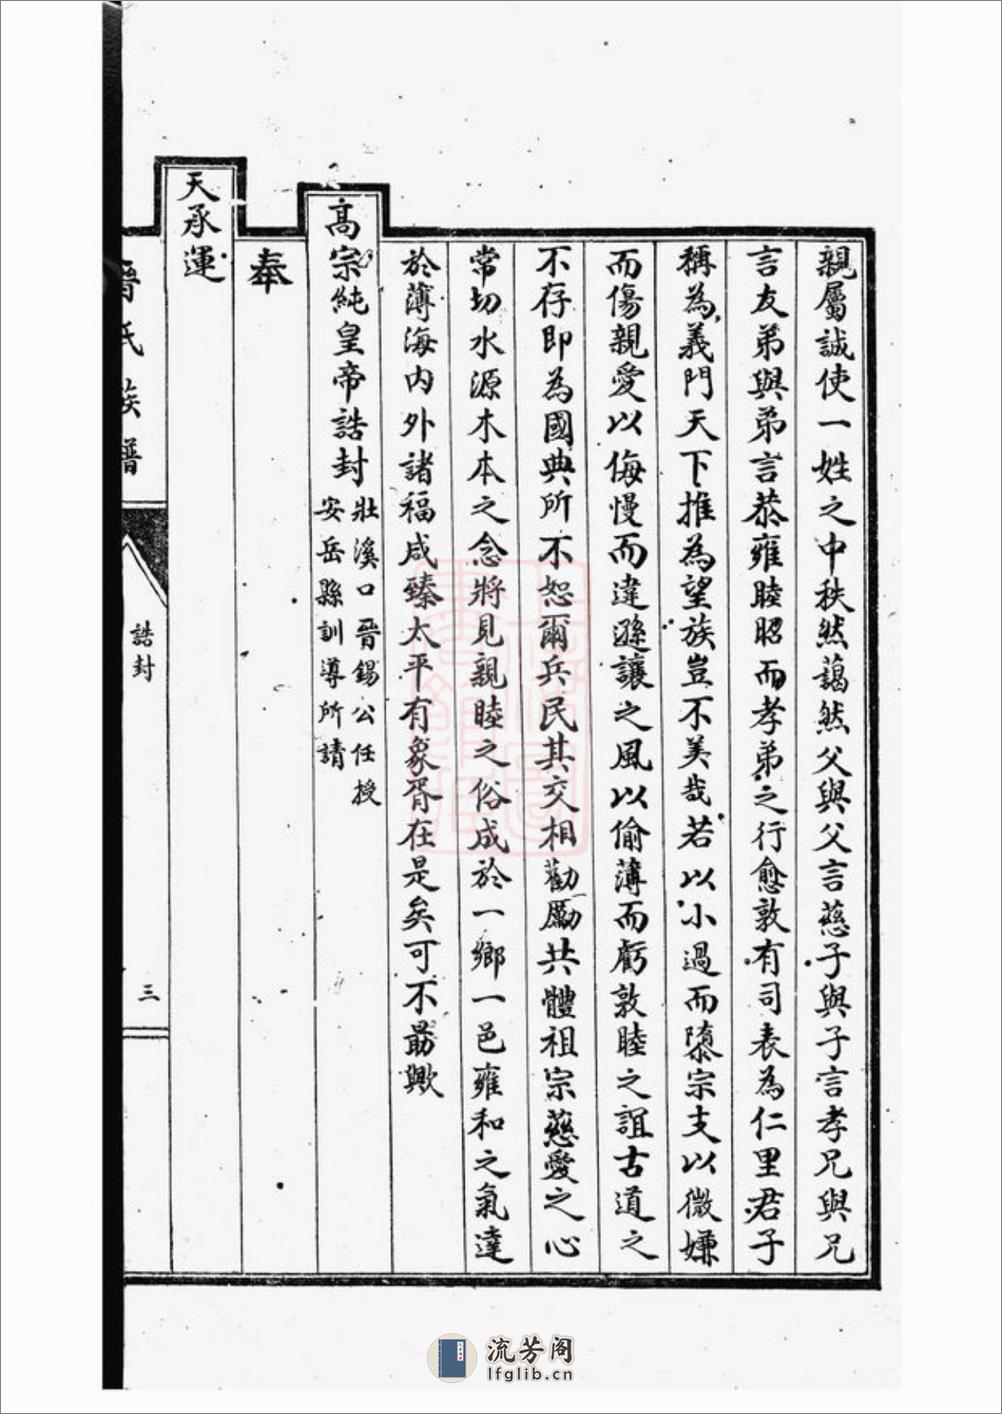 親屬誠使一姓之中秩然藹然父與父言慈子與子言孝兄與兄
言友弟與弟言恭雍睦昭而孝弟之行愈敦有司表為仁里君子
稱為義門天下推為望族豈不美哉若以小過而隳宗支以微嫌
而傷親愛以侮慢而違遜讓之風以偷薄而虧敦睦之誼古道之
不存即為國典所不恕爾兵民其交相勸勵共體祖宗慈愛之心
常切水源木本之念將見親睦之俗成於一鄉一邑雍和之氣達
於薄海內外諸福咸臻太平有象胥在是矣可不勗歟
高宗純皇帝誥封
壯溪口晉錫公任授
安岳縣訓導所請
奉
天承運
晉氏族譜
誥封
三
流芳阁
lfglib.cn